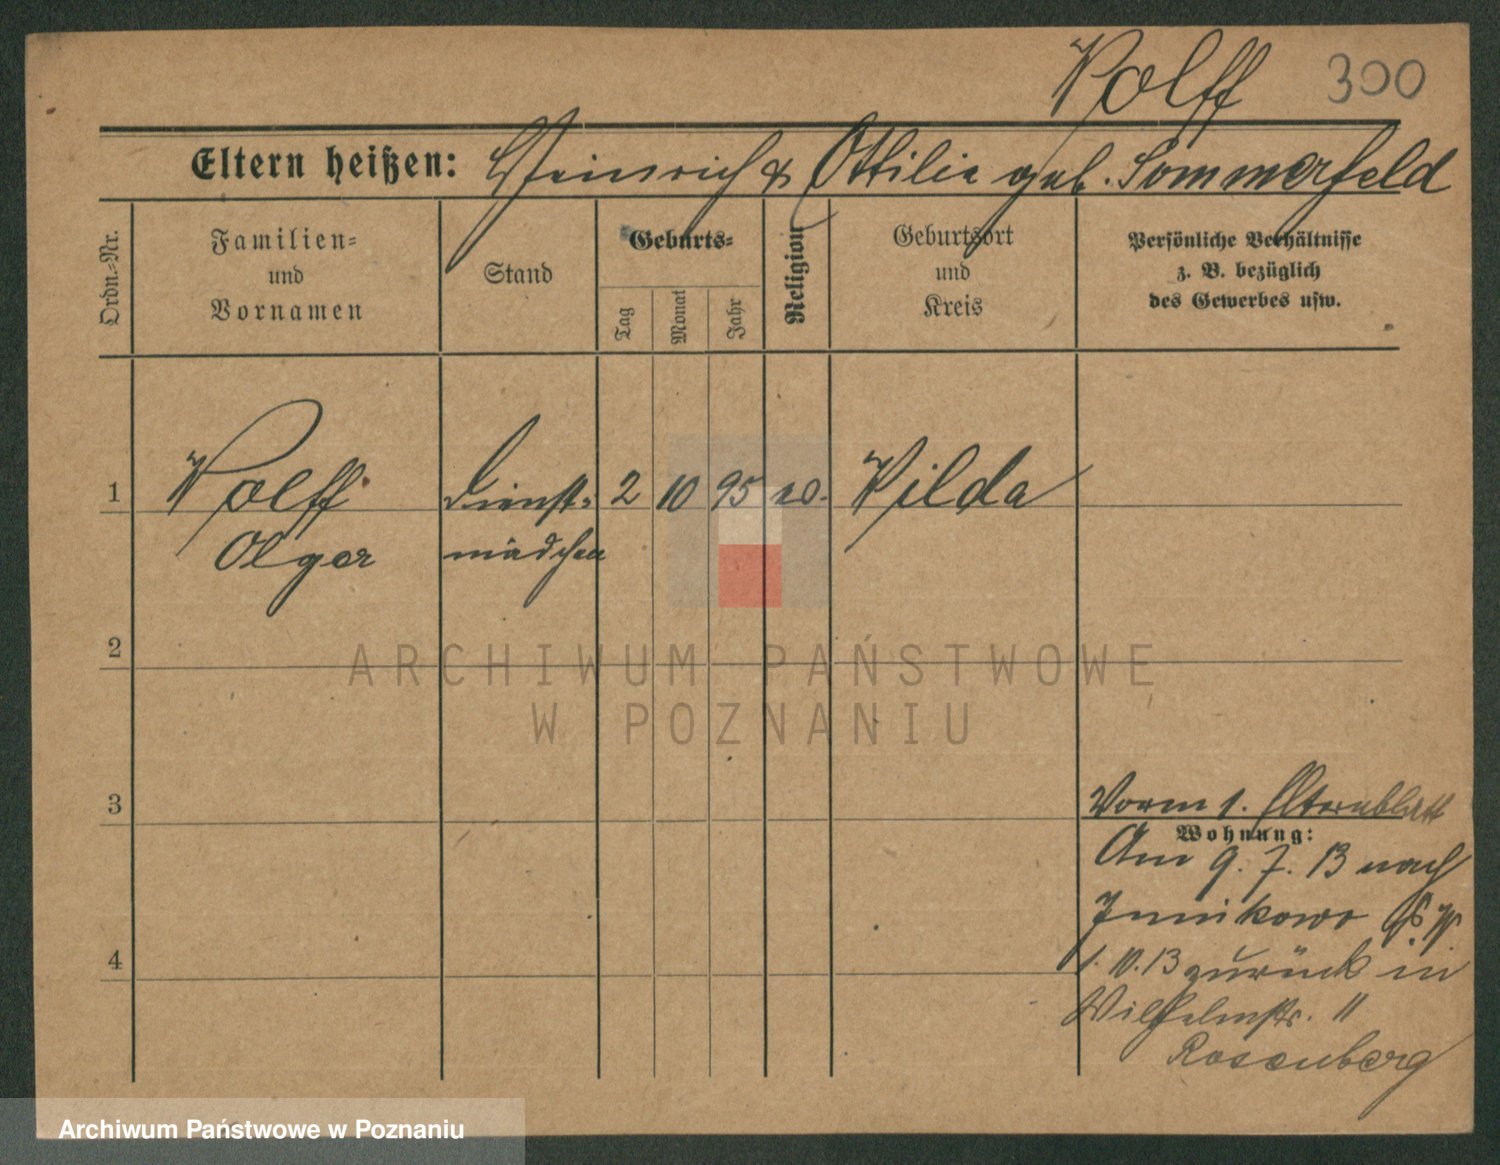 Wolff 300
Eltern heißen: Heinrich & Ottilie geb. Sommerfeld
Ordn.-Nr.
Familien-
und
Vornamen
Stand
Geburts-
Tag
Monat
Jahr
Religion
Geburtsort
und
Kreis
Persönliche Verhältnisse
z. B. bezüglich
des Gewerbes usw.
1 Wolff Dienst- 2 10 95 Wilda
Olga mädchen
2
3
Vorm 1. Elternblatt
Wohnung:
Am 9. 7. 13 nach
4
1. 10. 13 zurück in
Wilhelmstr. 11
Rosenberg
ARCHIWUM PAŃSTWOWE
W POZNANIU
Archiwum Państwowe w Poznaniu